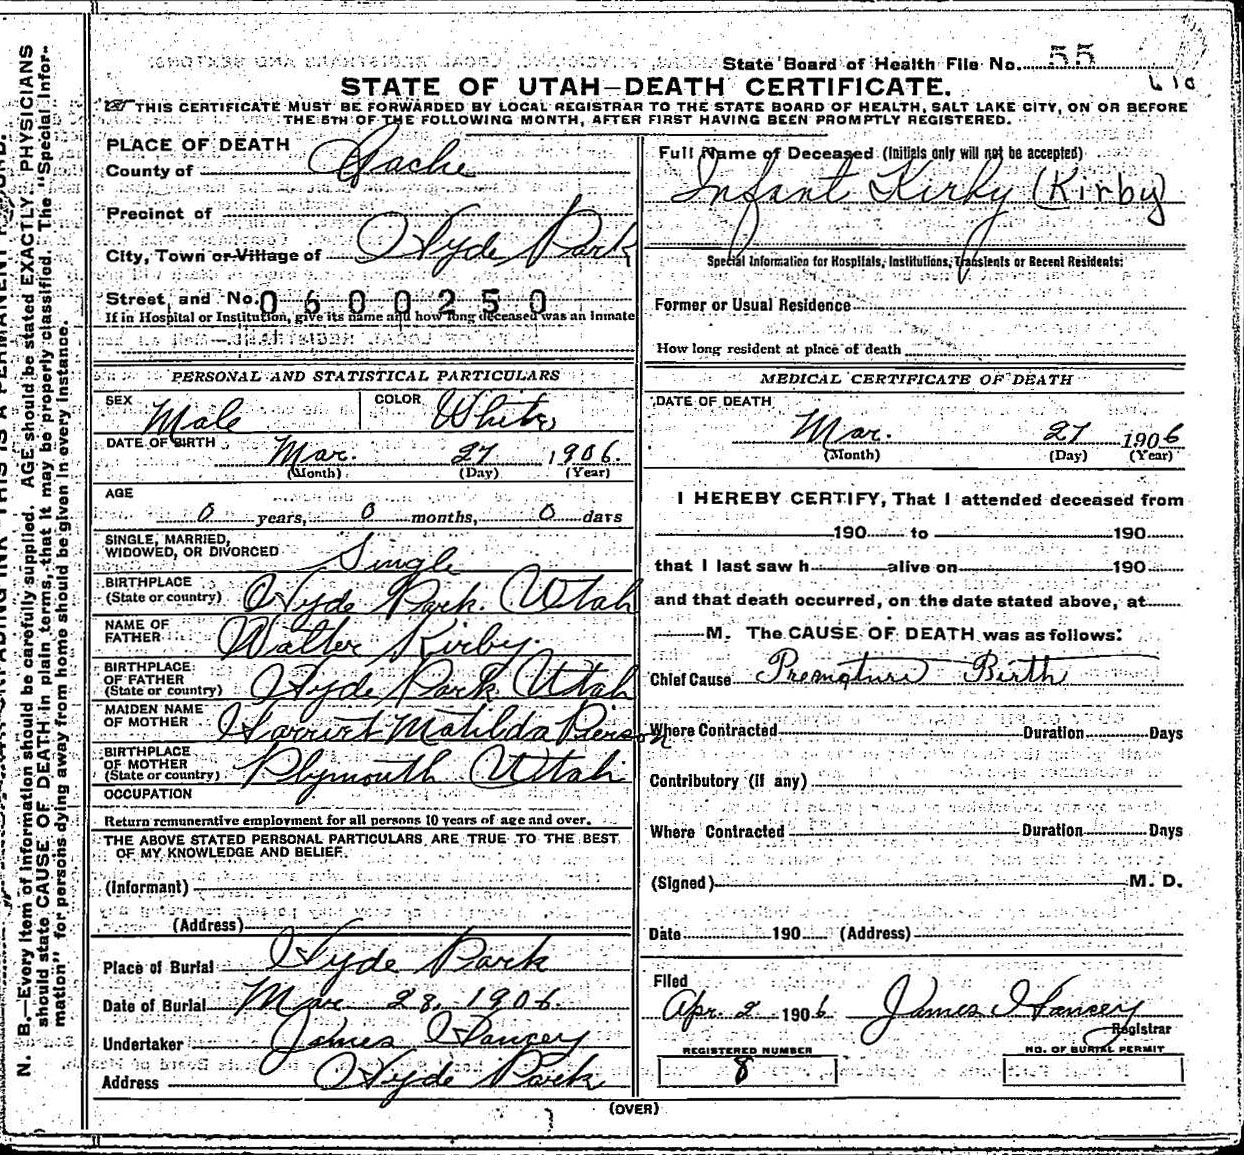 State Board of Health File No. 55
610
STATE OF UTAH—DEATH CERTIFICATE.
THIS CERTIFICATE MUST BE FORWARDED BY LOCAL REGISTRAR TO THE STATE BOARD OF HEALTH, SALT LAKE CITY, ON OR BEFORE
THE 5TH OF THE FOLLOWING MONTH, AFTER FIRST HAVING BEEN PROMPTLY REGISTERED.
PLACE OF DEATH
County of Cache
Precinct of
City, Town or Village of Hyde Park
Street, and No. 0600250
If in Hospital or Institution, give its name and how long deceased was an Inmate
Full Name of Deceased (Initials only will not be accepted)
Infant Kirby (Kirby)
Special Information for Hospitals, Institutions, Transients or Recent Residents:
Former or Usual Residence
How long resident at place of death
PERSONAL AND STATISTICAL PARTICULARS
SEX Male COLOR White
DATE OF BIRTH Mar. 27 1906.
(Month) (Day) (Year)
AGE
0 years, 0 months, 0 days
SINGLE, MARRIED,
WIDOWED, OR DIVORCED Single
BIRTHPLACE
(State or country) Hyde Park. Utah
NAME OF
FATHER Walter Kirby.
BIRTHPLACE
OF FATHER
(State or country) Hyde Park Utah
MAIDEN NAME
OF MOTHER Harriet Matilda Pierson
BIRTHPLACE
OF MOTHER
(State or country) Plymouth Utah
OCCUPATION
Return remunerative employment for all persons 10 years of age and over.
THE ABOVE STATED PERSONAL PARTICULARS ARE TRUE TO THE BEST
OF MY KNOWLEDGE AND BELIEF.
(Informant)
(Address)
Place of Burial Hyde Park
Date of Burial Mar 28, 1906.
Undertaker James Hancey
Address Hyde Park
MEDICAL CERTIFICATE OF DEATH
DATE OF DEATH
Mar. 27 1906
(Month) (Day) (Year)
I HEREBY CERTIFY, That I attended deceased from
190 to 190
that I last saw h alive on 190
and that death occurred, on the date stated above, at
M. The CAUSE OF DEATH was as follows:
Chief Cause Premature Birth
Where Contracted Duration Days
Contributory (if any)
Where Contracted Duration Days
(Signed) M. D.
Date 190 (Address)
Filed
Apr. 2 1906 James Hancey
Registrar
REGISTERED NUMBER
8
NO. OF BURIAL PERMIT
(OVER)
N. B.—Every item of information should be carefully supplied. AGE should be stated EXACTLY. PHYSICIANS
should state CAUSE OF DEATH in plain terms, that it may be properly classified. The "Special Infor-
mation" for persons dying away from home should be given in every instance.